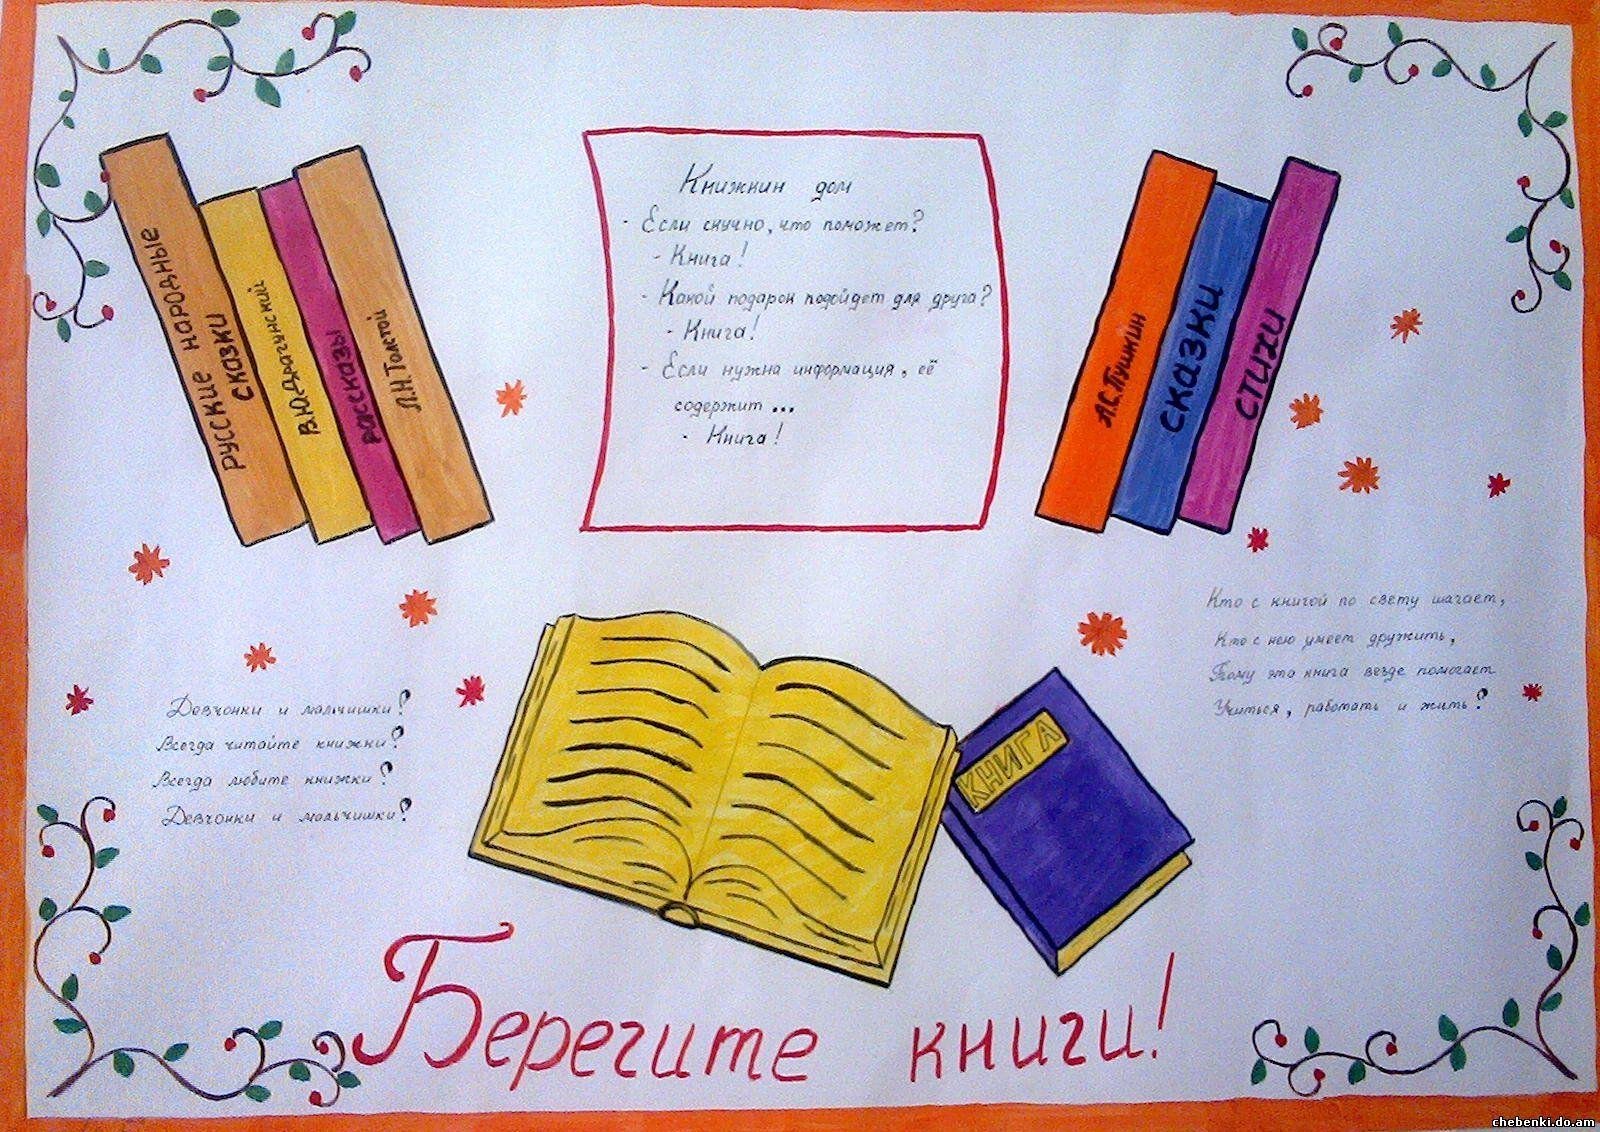 Русские народные
сказки
В.Ю.Драгунский
Рассказы
Л.Н.Толстой
Книжкин дом
- Если скучно, что поможет?
- Книга!
- Какой подарок подойдет для друга?
- Книга!
- Если нужна информация, её
содержит ...
- Книга!
А.С.Пушкин
Сказки
Стихи
Девчонки и мальчишки!
Всегда читайте книжки!
Всегда любите книжки!
Девчонки и мальчишки!
КНИГА
Кто с книгой по свету шагает,
Кто с нею умеет дружить,
Тому эта книга везде помогает
Учиться, работать и жить!
Берегите книги!
chebenki.do.am